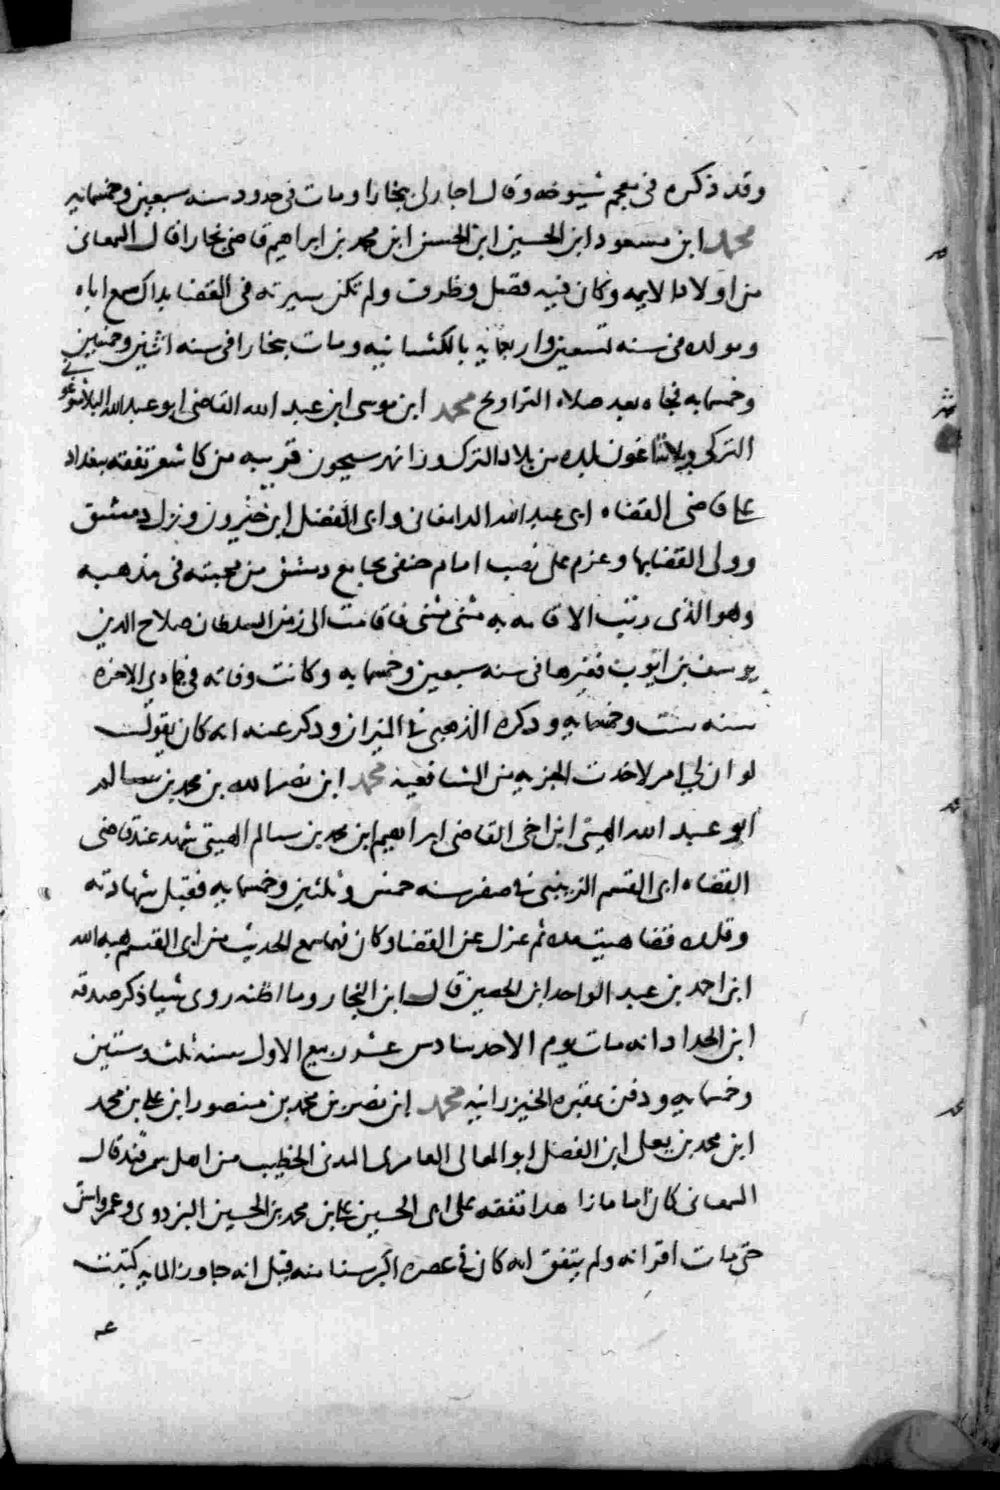 وقد ذكره في معجم شيوخه وقال اجاز لي بخارا ومات في حدود سنه سبعين وخمسمايه
محمد ابن مسعود ابن الحسين ابن الحسن ابن محمد بن ابراهيم قاضي بخارا قال السمعاني
من اولاد الايمه وكان فيه فضل وظرف ولم تكن سيرته في القضا بذاك سمع اباه
ومولده في سنه تسعين واربعمايه بالكشانيه ومات ببخارا في سنه اثنين وخمسين
وخمسمايه فجاه بعد صلاه التراويح محمد ابن موسى ابن عبد الله القاضي ابو عبد الله البلاشاغوني
التركي وبلاشاغون بلده من بلاد الترك ورا نهر سيحون قريبه من كاشغر تفقه ببغداد
على قاضي القضاه ابي عبد الله الدامغاني وابي الفضل ابن خيرون ونزل دمشق
وولى القضا بها وعزم على نصب امام حنفي بجامع دمشق من محبته في مذهبه
وهو الذي رتب الاقامه به مثنى مثنى فاقامت الى زمن السلطان صلاح الدين
يوسف بن ايوب فغيرها في سنه سبعين وخمسمايه وكانت وفاته في جمادي الاخره
سنه ست وخمسمايه وذكره الذهبي في الميزان وذكر عنه انه كان يقول
لو ان لي امر لاخذت الجزيه من الشافعيه محمد ابن نصر الله بن محمد بن سالم
ابو عبد الله الهيتي ابن اخي القاضي ابراهيم ابن محمد بن سالم الهيتي شهد عند قاضي
القضاه ابي القسم الزينبي في صفر سنه خمس وثلثين وخمسمايه فقبل شهادته
وقلده قضا هيت مده ثم عزل عن القضا وكان فيما سمع الحديث من ابي القسم هبه الله
ابن احمد بن عبد الواحد ابن الحصين قال ابن النجار وما اظنه روى شيا ذكر صدقه
ابن الحداد انه مات يوم الاحد سادس عشر ربيع الاول سنه ثلث وستين
وخمسمايه ودفن بمقبره الخيزرانيه محمد ابن نصر بن محمد بن منصور ابن علي بن محمد
ابن محمد بن يعلى ابن الفضل ابو المعالي العامري المدني الخطيب من اهل سمرقند قال
السمعاني كان اماما زاهدا تفقه على ابي الحسين علي بن محمد بن الحسين البزدوي وعمر واسن
حتى مات اقرانه ولم يتفق انه كان في عصره اكبر سنا منه قيل انه جاوز المايه كتبت
عه